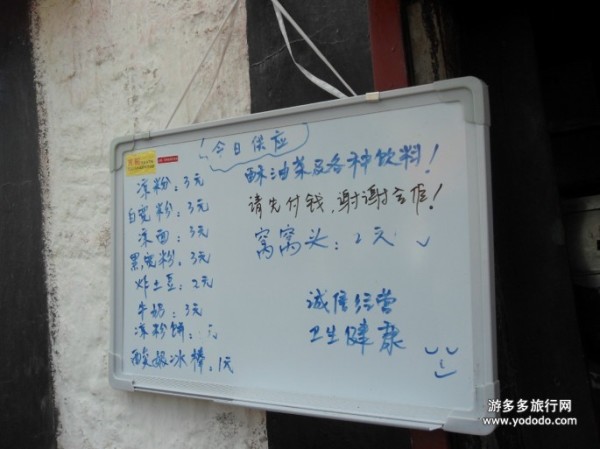 今日供应
凉粉：3元
白宽粉：3元
凉面：3元
黑宽粉：3元
炸土豆：2元
牛奶：3元
凉粉饼：元
酸奶冰棒：1元
酥油茶及各种饮料！
请先付钱，谢谢合作！
窝窝头：2元
诚信经营
卫生健康
游多多旅行网
www.yododo.com